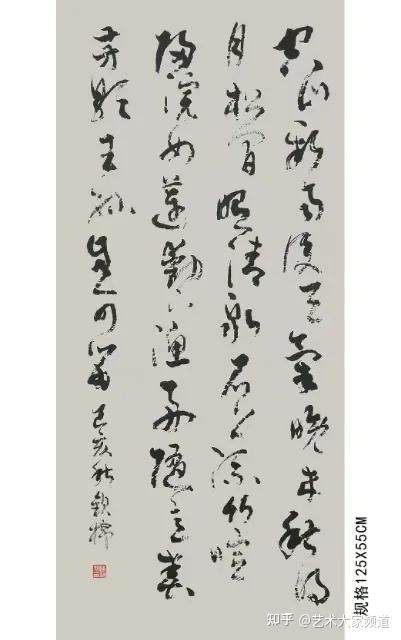 空山新雨後天氣晚來秋明
月松間照清泉石上流竹喧
歸浣女蓮動下漁舟隨意春
芳歇王孫自可留己亥秋
规格125X55CM
知乎 @艺术大家频道